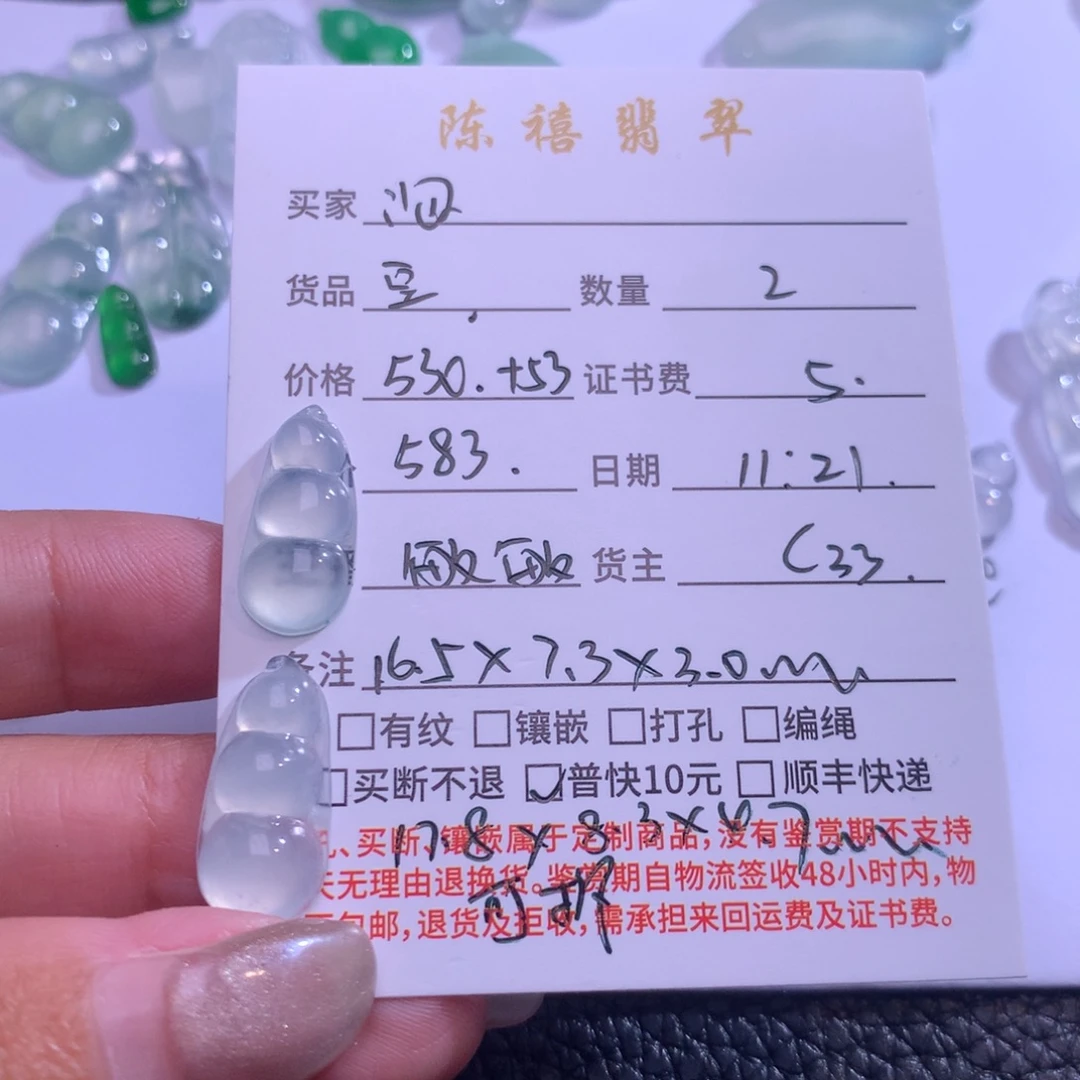 陈禧翡翠
买家
货品 豆. 数量 2
价格 530.+53 证书费 5.
583. 日期 11:21.
敏敏 货主 C33.
备注 16.5×7.3×3.0mm
□有纹 □镶嵌 □打孔 □编绳
□买断不退 ☑普快10元 □顺丰快递
17.8×8.3×4.7mm
孔、买断、镶嵌属于定制商品,没有鉴赏期不支持
天无理由退换货。鉴赏期自物流签收48小时内,物
不包邮,退货及拒收,需承担来回运费及证书费。
可拆